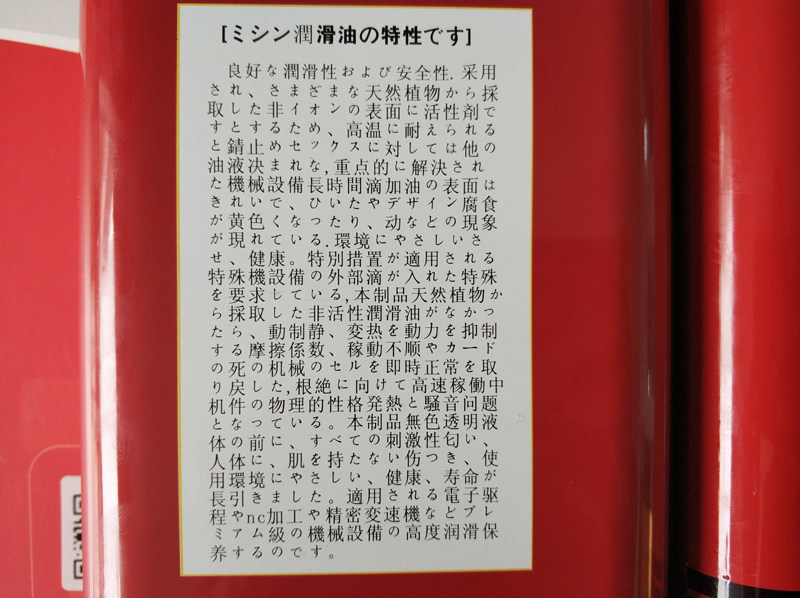 [ミシン潤滑油の特性です]
良好な潤滑性および安全性. 采用
され、さまざまな天然植物から採
取した非イオンの表面に活性剤で
すとするため、高温に耐えられる
と錆止めセックスに対しては他の
油液决まれな,重点的に解決され
た機械設備長時間滴加油の表面は
きれいで、ひいたやデザイン腐食
が黄色くなったり、动などの現象
が現れている. 環境にやさしいさ
せ、健康。特別措置が適用される
特殊機設備の外部滴が入れた特殊
を要求している,本制品天然植物か
ら採取した非活性潤滑油がなかっ
たら、動制静、変热を動力を抑制
する摩擦係数、稼動不順やカード
の死の机械のセルを即時正常を取
り戻した,根絶に向けて高速稼働中
机件の物理的性格発熱と騒音问题
となっている。本制品無色透明液
体の前に、すべての刺激性匂い、
人体に、肌を持たない伤つき、使
用環境にやさしい、健康、寿命が
長引きました。適用される電子驱
程やnc加工や精密変速機などプレ
ミアム級の機械設備の高度润滑保
养するのです。